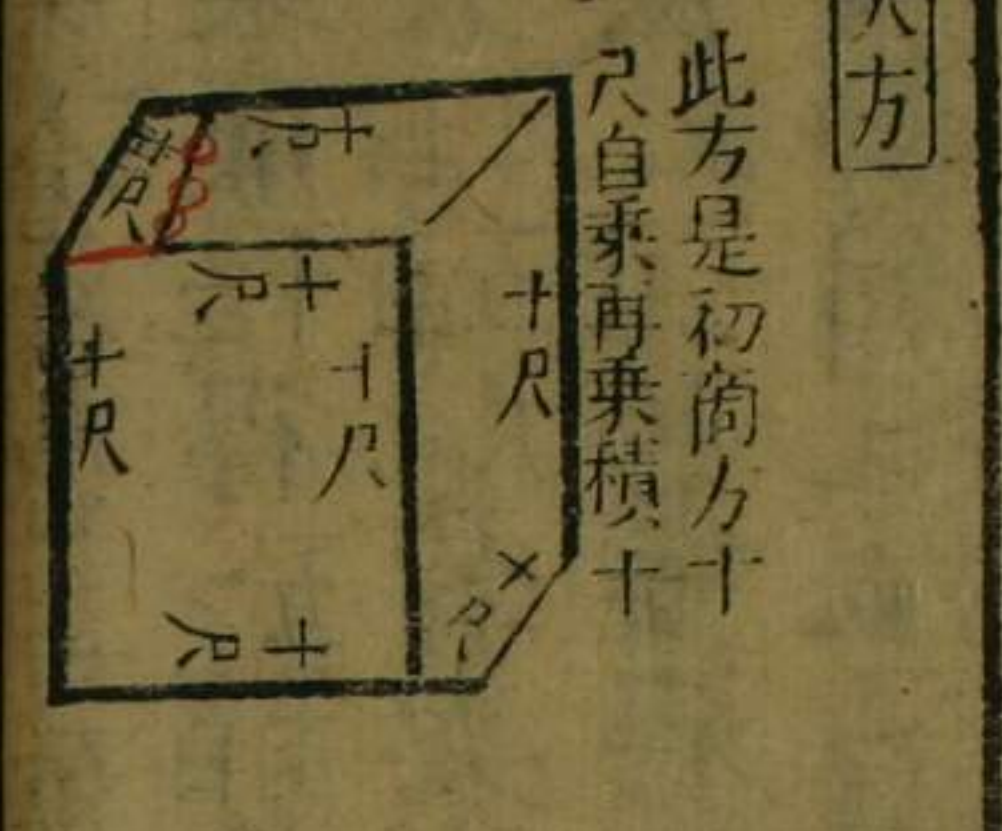 方
此方是初商方十
尺自乘再乘積十
十尺
十尺
十尺
十尺
十尺
十尺
十尺
十尺